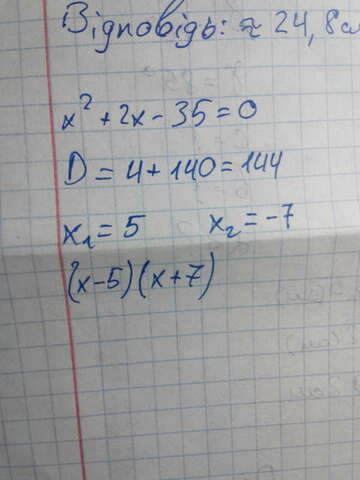 Відповідь: ≈ 24,8см
x² + 2x - 35 = 0
D = 4 + 140 = 144
x₁ = 5 x₂ = -7
(x-5)(x+7)